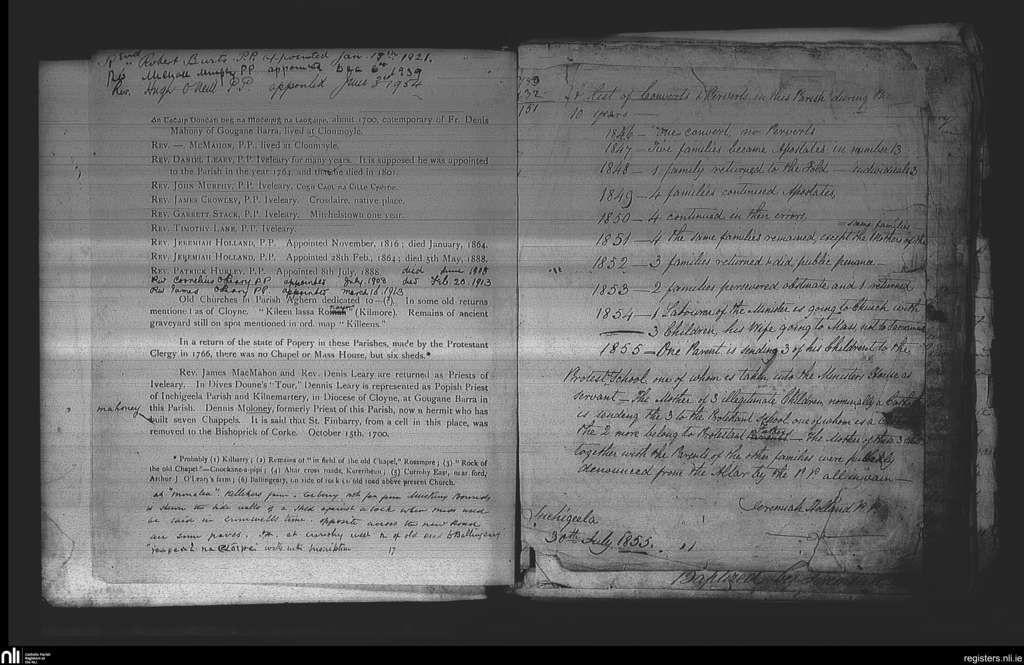 Revd Robert Burts P.P. appointed Jan. 19th 1921.
Rev Michael Murphy P.P. appointed Dec 6th 1939
Rev. Hugh O'Neill P.P. appointed June 3rd 1954
about 1700, cotemporary of Fr. Denis
Mahony of Gougane Barra, lived at Cloonmoyle.
Rev. —. McMahon, P.P., lived at Cloonmoyle.
Rev. Daniel Leary, P.P. Iveleary for many years. It is supposed he was appointed
to the Parish in the year 1764, and that he died in 1801.
Rev. John Murphy, P.P. Iveleary,
Rev. James Crowley, P.P. Iveleary. Crosslaire, native place.
Rev. Garrett Stack, P.P. Iveleary. Mitchelstown one year.
Rev. Timothy Lane, P.P. Iveleary.
Rev. Jeremiah Holland, P.P. Appointed November, 1816; died January, 1864.
Rev. Jeremiah Holland, P.P. Appointed 28th Feb., 1864; died 5th May, 1888.
Rev. Patrick Hurley, P.P. Appointed 8th July, 1888 died June 1908
Rev Cornelius O'Leary P.P appointed July, 1908 died Feb. 20. 1913
Rev James O'Leary P.P appointed March 16. 1913
Old Churches in Parish Aghern dedicated to—(?). In some old returns
mentioned as of Cloyne. "Kileen lassa
(Kilmore). Remains of ancient
graveyard still on spot mentioned in ord. map "Killeens."
In a return of the state of Popery in these Parishes, made by the Protestant
Clergy in 1766, there was no Chapel or Mass House, but six sheds.*
Rev. James MacMahon and Rev. Denis Leary are returned as Priests of
Iveleary. In Dives Doune's "Tour," Dennis Leary is represented as Popish Priest
of Inchigeela Parish and Kilnemartery, in Diocese of Cloyne, at Gougane Barra in
mahoney
this Parish. Dennis Moloney, formerly Priest of this Parish, now a hermit who has
built seven Chappels. It is said that St. Finbarry, from a cell in this place, was
removed to the Bishoprick of Corke. October 15th, 1700.
* Probably (1) Kilbarry; (2) Remains of "in field of the old Chapel," Rossmore; (3) "Rock of
the old Chapel"—Cnockane-a-pipi; (4) Altar cross roads, Kereribeun; (5) Currohy East, near ford,
Arthur J O'Leary's farm; (6) Ballingeary, on side of rock in old road above present Church.
is shewn the side walls of a shed against a rock when mass used
be said in cromwells time. opposite across the new Road
17
A List of Converts & Perverts in this Parish during the
10 years—
1846 — One convert, no Perverts
1847 — Five families became Apostates in number 13
1848 — 1 family returned to the Fold — individuals 3
1849 — 4 families continued Apostates
1850 — 4 continued in their errors
— same families
1851 — 4 the same families remained, except the Mothers of the
1852 — 3 families returned & did public penance —
1853 — 2 families persevered obstinate and 1 returned
1854 — 1 Labourer of the Minister is going to Church with
3 Children, his Wife going to Mass, not to
1855 — One Parent is sending 3 of his Children to the
Protest. School, one of whom is taken into the Ministers House as
servant — The Mother of 3 illegitimate Children, nominally a
is sending the 3 to the Protestant School, one of whom is a
the 2 more belong to Protestant — The Mother of these 3
together with the Parents of the other families were publickly
denounced from the Altar by the P.P. all in vain —
Jeremiah Holland P.P.
Inchigeela
30th July 1855.
Baptized by
nli
Catholic Parish
Registers at
the NLI
registers.nli.ie